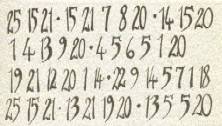 25 15 21 · 15 21 7 8 20 · 14 15 20
1 4 13 9 20 · 4 5 6 5 1 20
19 21 12 20 1 14 · 22 9 14 5 7 1 18
25 15 21 · 13 21 19 20 · 13 5 5 20